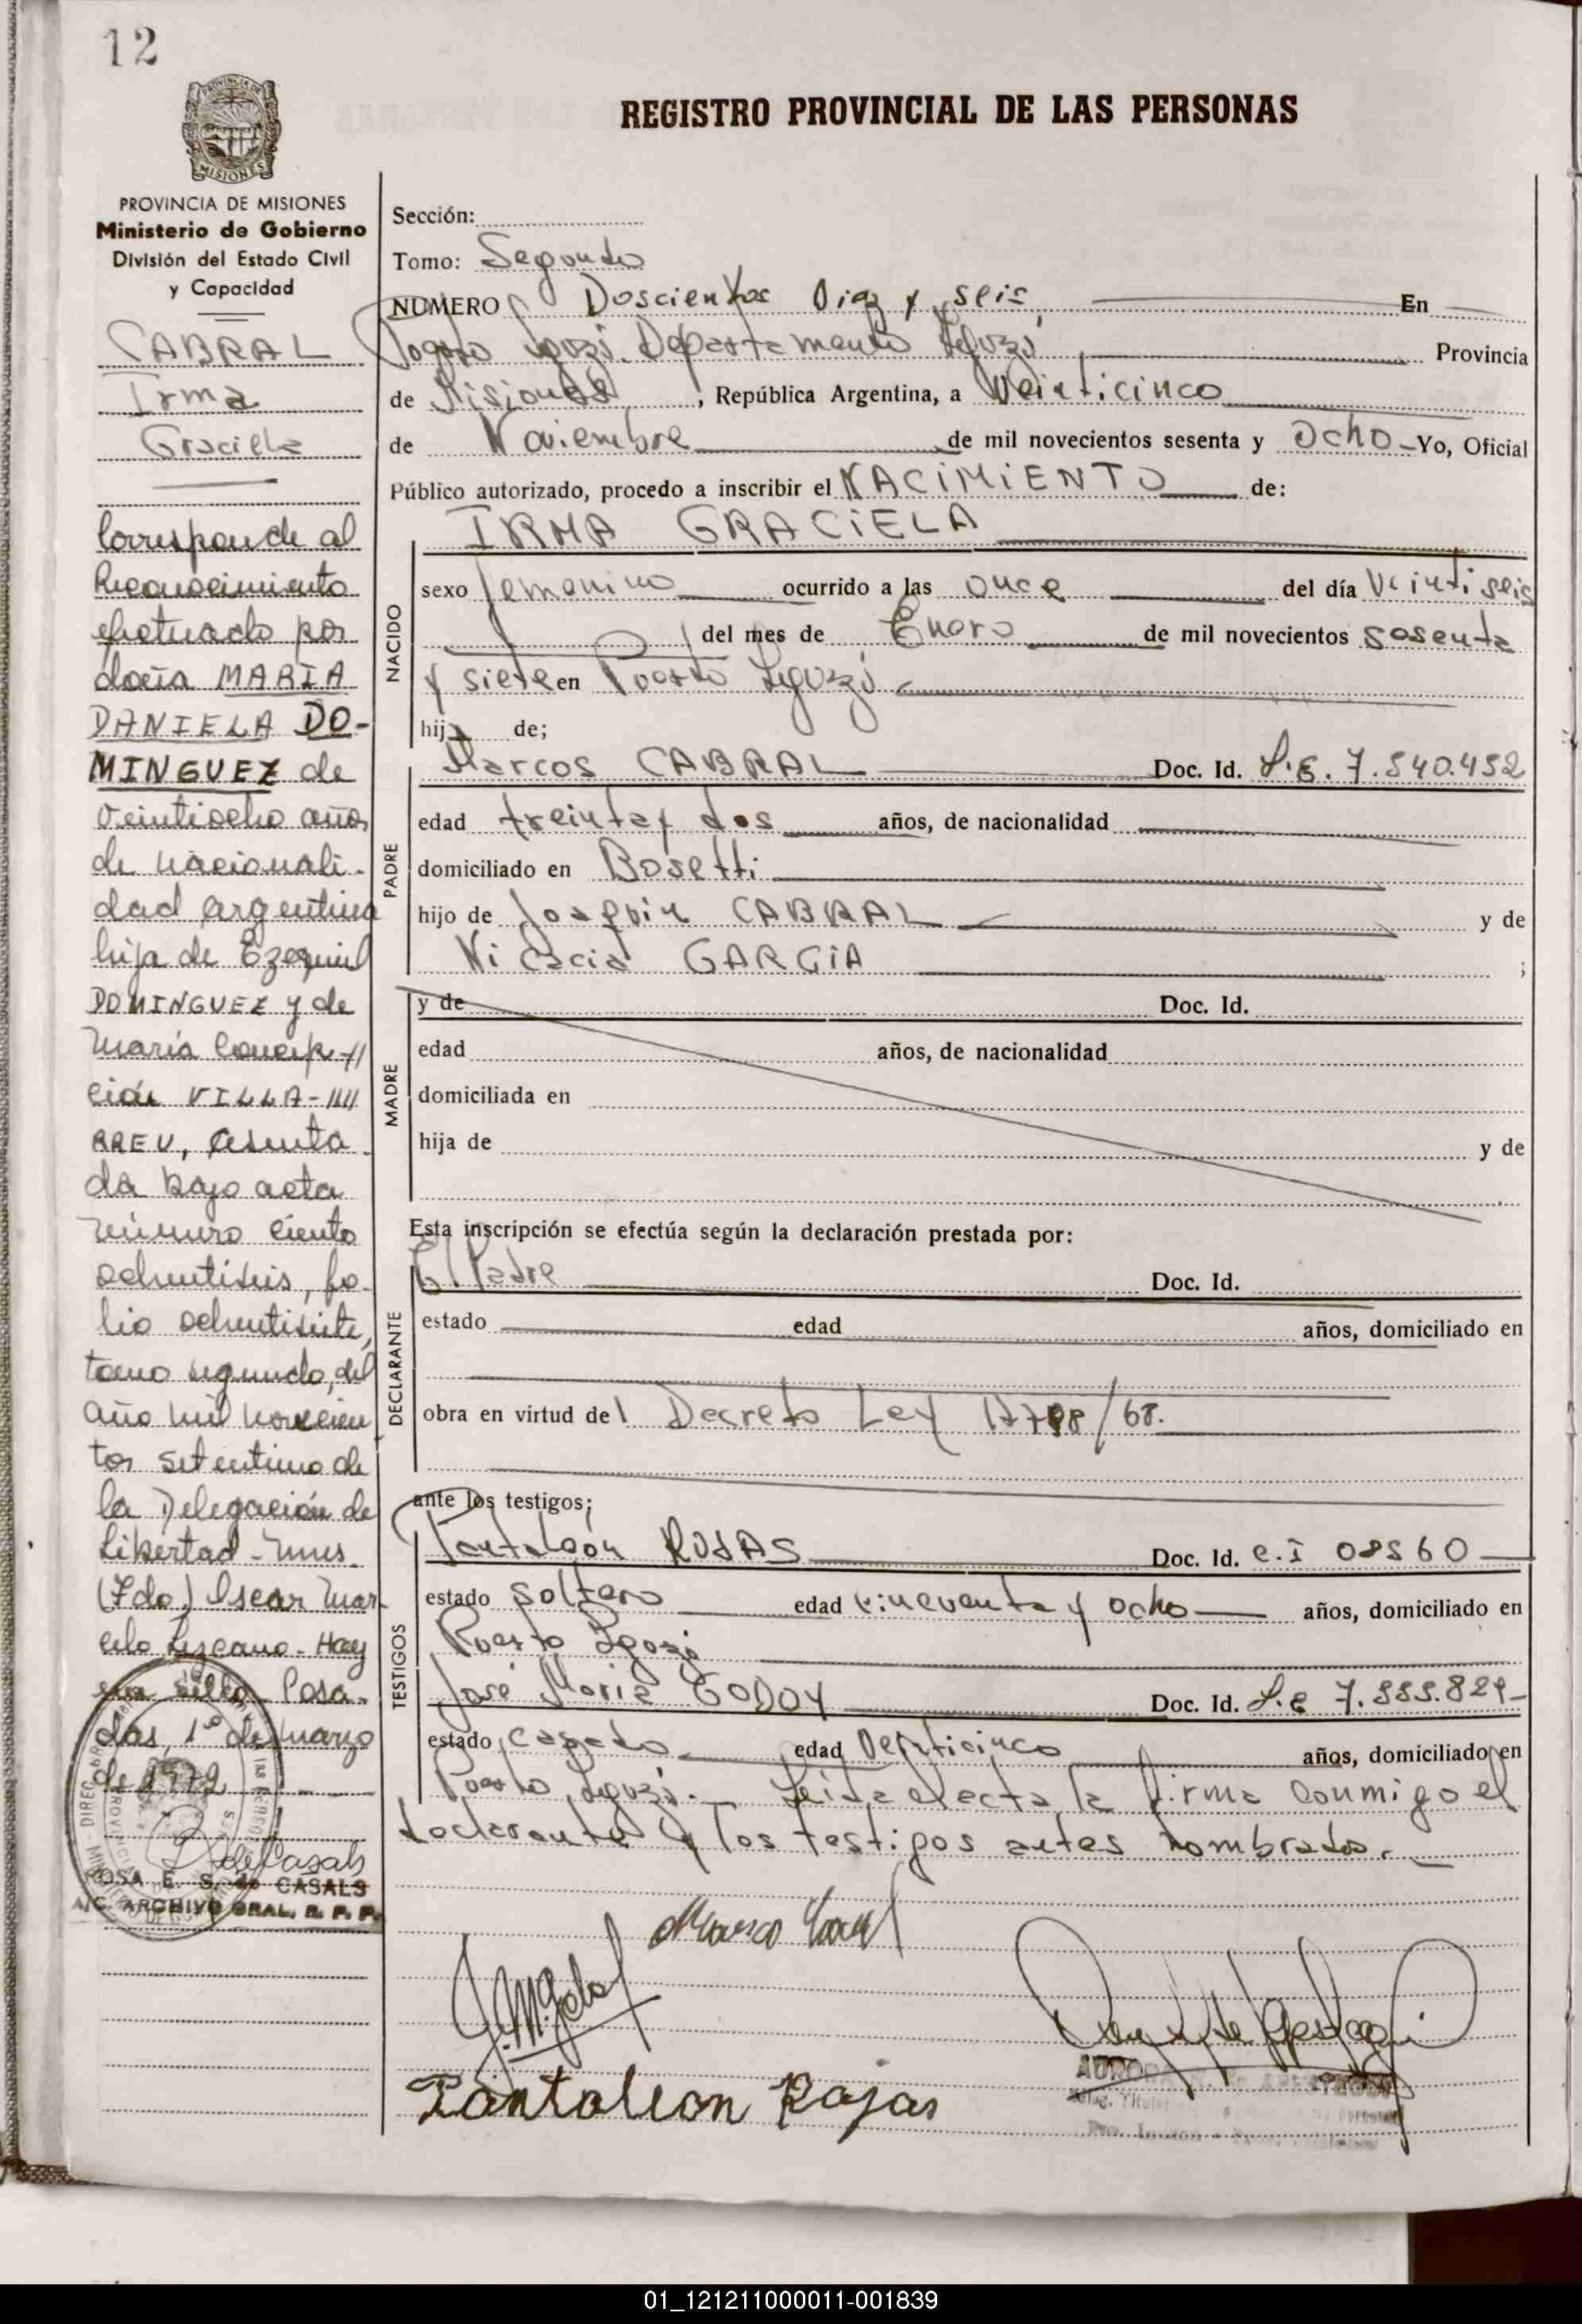 12
REGISTRO PROVINCIAL DE LAS PERSONAS
MISIONES
PROVINCIA DE MISIONES
Ministerio de Gobierno
División del Estado Civil
y Capacidad
CABRAL
Irma
Graciela
Corresponde al
Reconocimiento
efectuado por
doña MARIA
DANIELA DO-
MINGUEZ de
veintiocho años
de nacionali-
dad argentina
hija de Ezequiel
DOMINGUEZ y de
María Concep-//
ción VILLA-////
RREU, asenta
da bajo acta
número ciento
ochentiseis, fo-
lio ochentisiete,
tomo segundo, del
año mil novecien
tos setentiuno de
la Delegación de
Libertad - Mnes.
(Fdo.) Oscar Mar-
celo Lezcano - Hay
un sello Posa-
das, 1º de marzo
de 1972
de Casals
ROSA E. S. de CASALS
A/C. ARCHIVO GRAL. R. P. P.
Sección:
Tomo: Segundo
NUMERO Doscientos Diez y seis En
Puerto Iguazú Departamento Iguazú Provincia
de Misiones, República Argentina, a Veinticinco
de Noviembre de mil novecientos sesenta y Ocho Yo, Oficial
Público autorizado, procedo a inscribir el NACIMIENTO de:
IRMA GRACIELA
NACIDO
sexo femenino ocurrido a las once del día Veinti seis
del mes de Enero de mil novecientos sesenta
y siete en Puerto Iguazú
hija de;
PADRE
Marcos CABRAL Doc. Id. L.E. 7.540.452
edad treinta y dos años, de nacionalidad
domiciliado en Bosetti
hijo de Joaquin CABRAL y de
Nicacia GARCIA ;
MADRE
y de Doc. Id.
edad años, de nacionalidad
domiciliada en
hija de y de
Esta inscripción se efectúa según la declaración prestada por:
DECLARANTE
El Padre Doc. Id.
estado edad años, domiciliado en
obra en virtud del Decreto Ley /68.
ante los testigos;
TESTIGOS
Pantaleón ROJAS Doc. Id. C.I 08560
estado soltero edad cincuenta y ocho años, domiciliado en
Puerto Iguazú
José María GODOY Doc. Id. L.E 7.585.829-
estado casado edad Veinticinco años, domiciliado en
Puerto Iguazú. Leída el acta la firma conmigo el
declarante y los testigos antes nombrados.
J.M. Godoy
Pantaleon Rojas
01_121211000011-001839